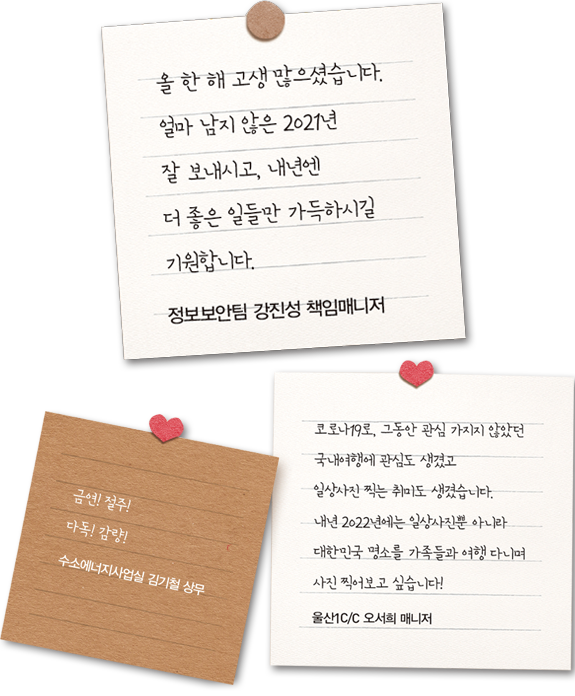 올 한 해 고생 많으셨습니다.
얼마 남지 않은 2021년
잘 보내시고, 내년엔
더 좋은 일들만 가득하시길
기원합니다.
정보보안팀 강진성 책임매니저
금연! 절주!
다독! 감량!
수소에너지사업실 김기철 상무
코로나19로, 그동안 관심 가지지 않았던
국내여행에 관심도 생겼고
일상사진 찍는 취미도 생겼습니다.
내년 2022년에는 일상사진뿐 아니라
대한민국 명소를 가족들과 여행 다니며
사진 찍어보고 싶습니다!
울산1C/C 오서희 매니저